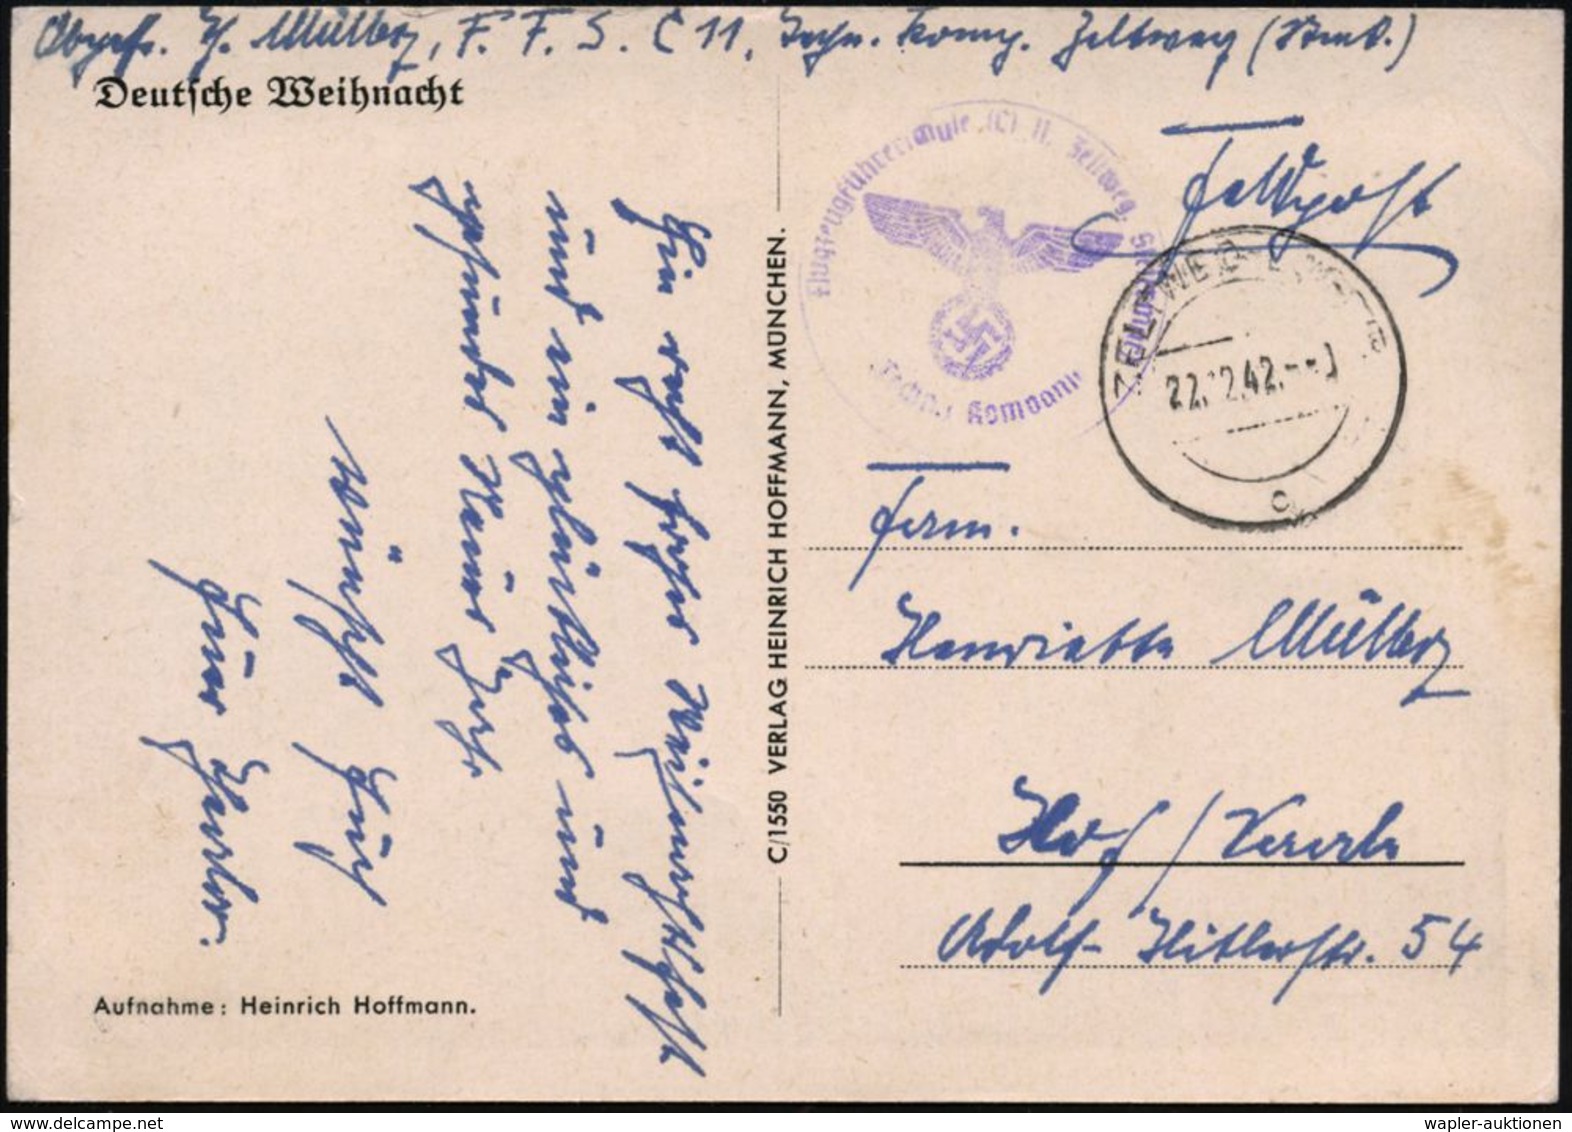 Obgefr. H. Müller, F. F. S. C 11, Techn. Komp. Zeltweg (Stmk.)
Deutsche Weihnacht
Feldpost
Flugzeugführerschule (C) 11, Zeltweg,
Techn. Kompanie
ZELTWEG
22.12.42.
c
Ein recht frohes Weihnachtsfest
und ein glückliches und
gesundes Neues Jahr
wünscht Euch
Euer
C/1550 VERLAG HEINRICH HOFFMANN, MÜNCHEN.
Fam.
Henriette Müller
Hof/
Adolf-Hitlerstr. 54
Aufnahme: Heinrich Hoffmann.
wapler-auktionen